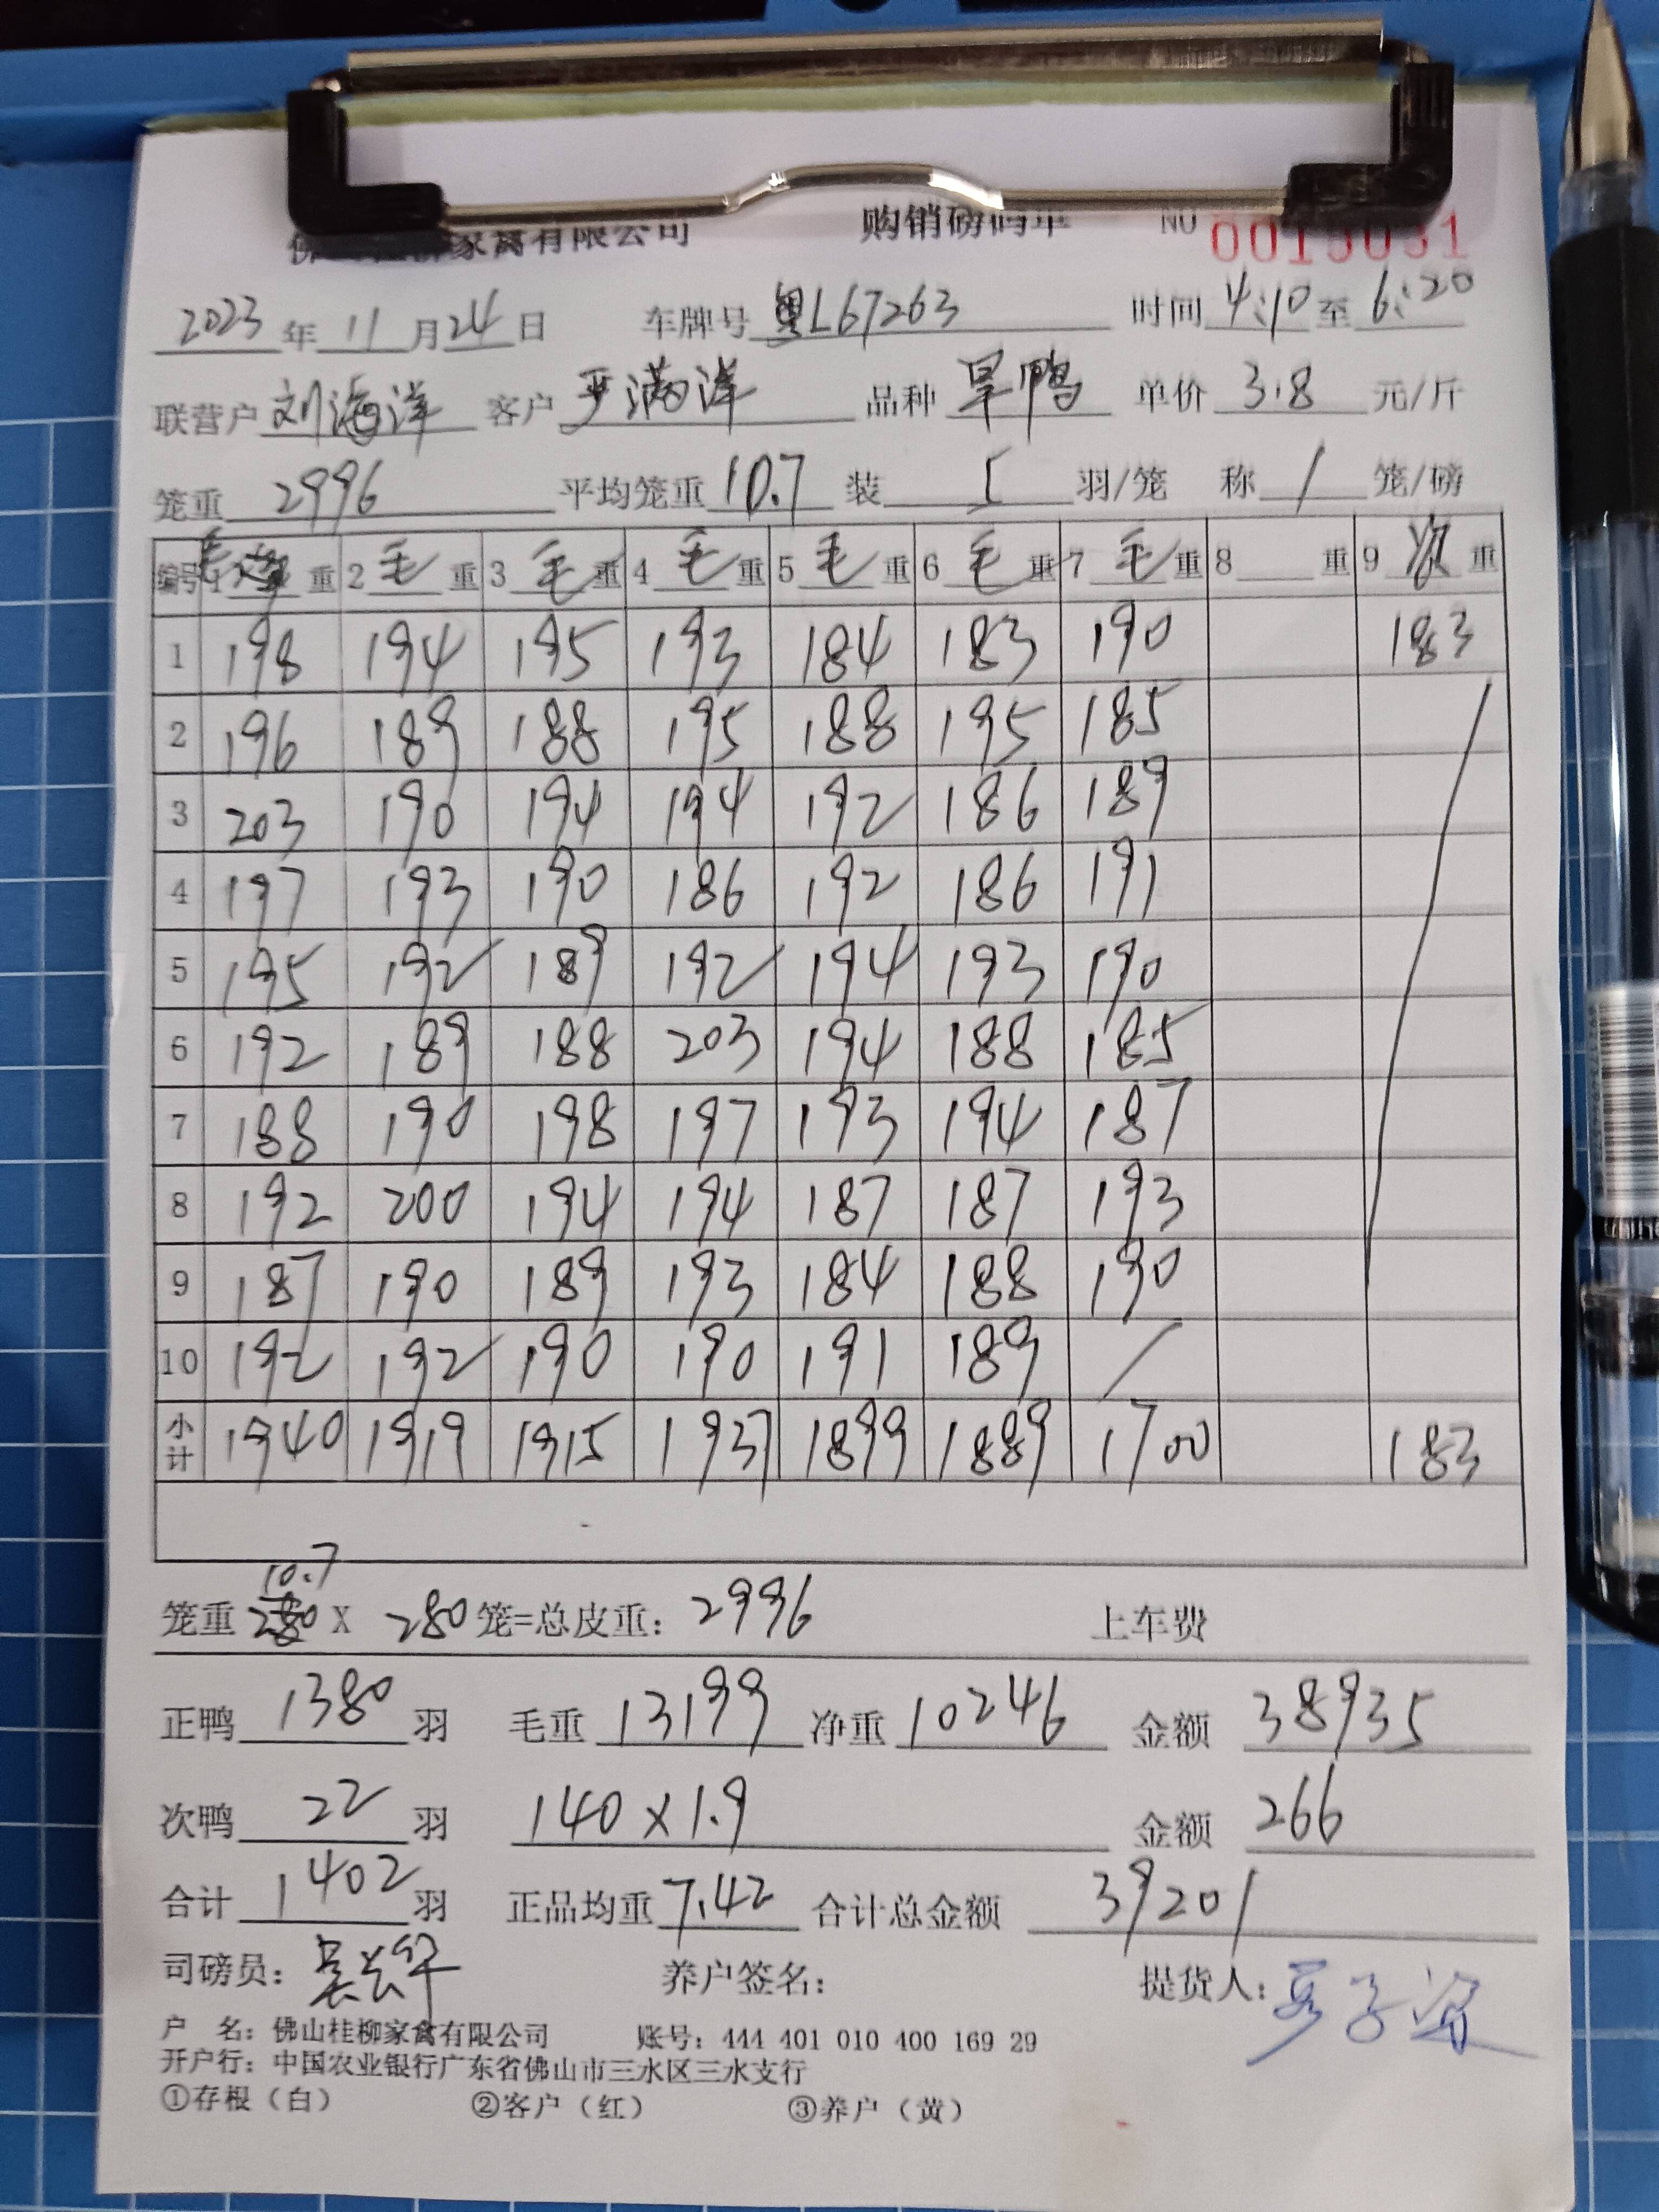 家禽有限公司 购销磅码单 NO 0015031
2023年11月24日 车牌号 粤L67263 时间 4:10 至 6:20
联营户 刘海洋 客户 严满洋 品种 旱鸭 单价 3.8 元/斤
笼重 2996 平均笼重 10.7 装 5 羽/笼 称 1 笼/磅
编号 1 毛 重 2 毛 重 3 毛 重 4 毛 重 5 毛 重 6 毛 重 7 毛 重 8 重 9 次 重
1 198 194 195 193 184 183 190 183
2 196 189 188 195 188 195 185
3 203 190 194 194 192 186 189
4 197 193 190 186 192 186 191
5 195 192 189 192 194 193 190
6 192 189 188 203 194 188 185
7 188 190 198 197 193 194 187
8 192 200 194 194 187 187 193
9 187 190 189 193 184 188 190
10 192 192 190 190 191 189 /
小计 1940 1919 1915 1937 1899 1889 1700 183
10.7
笼重 280 X 280 笼=总皮重: 2996 上车费
正鸭 1380 羽 毛重 13199 净重 10246 金额 38935
次鸭 22 羽 140×1.9 金额 266
合计 1402 羽 正品均重 7.42 合计总金额 39201
司磅员: 养户签名: 提货人:
户 名: 佛山桂柳家禽有限公司 账号: 444 401 010 400 169 29
开户行: 中国农业银行广东省佛山市三水区三水支行
①存根（白） ②客户（红） ③养户（黄）